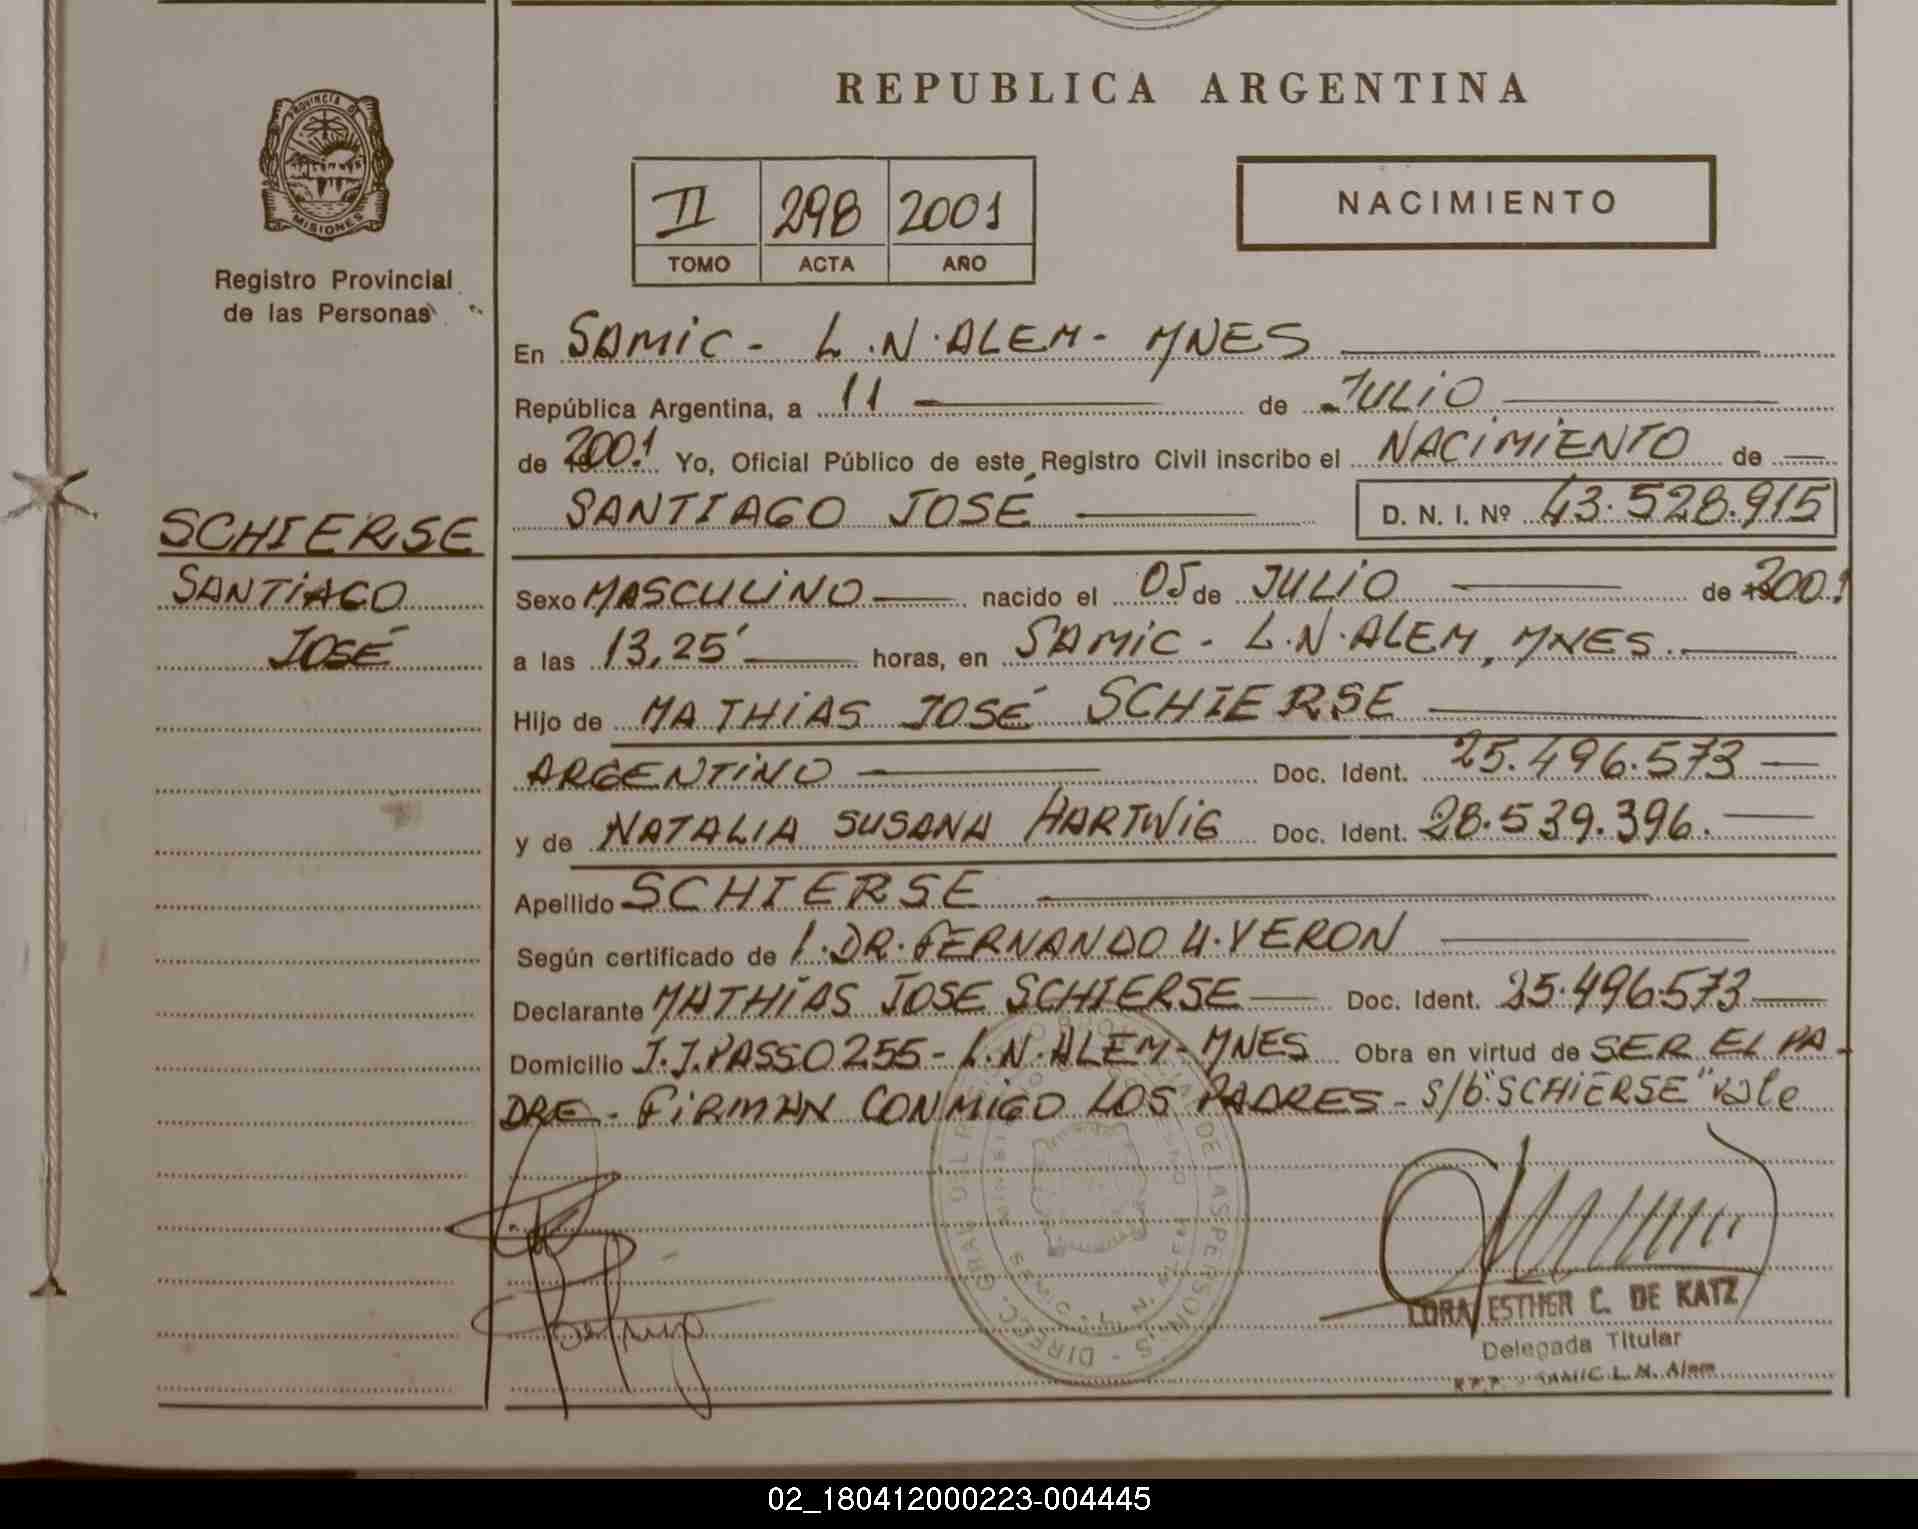 REPUBLICA ARGENTINA
PROVINCIA DE
MISIONES
Registro Provincial
de las Personas
II 298 2001
TOMO ACTA AÑO
NACIMIENTO
En SAMIC - L.N.ALEM - MNES
República Argentina, a 11 de JULIO
de 2001 Yo, Oficial Público de este Registro Civil inscribo el NACIMIENTO de
SANTIAGO JOSÉ D. N. I. Nº 43.528.915
SCHIERSE
SANTIAGO
JOSÉ
Sexo MASCULINO nacido el 05 de JULIO de 2001
a las 13,25' horas, en SAMIC - L.N.ALEM, MNES.
Hijo de MATHIAS JOSÉ SCHIERSE
ARGENTINO Doc. Ident. 25.496.573
y de NATALIA SUSANA HARTWIG Doc. Ident. 28.539.396.
Apellido SCHIERSE
Según certificado de 1.DR.FERNANDO U.VERON
Declarante MATHIAS JOSE SCHIERSE Doc. Ident. 25.496.573
Domicilio J.J.PASSO 255 - L.N.ALEM - MNES Obra en virtud de SER EL PA-
DRE - FIRMAN CONMIGO LOS PADRES - s/b "SCHIERSE" vale
ESTHER C. DE KATZ
Delegada Titular
SAMIC L. N. Alem
02_180412000223-004445